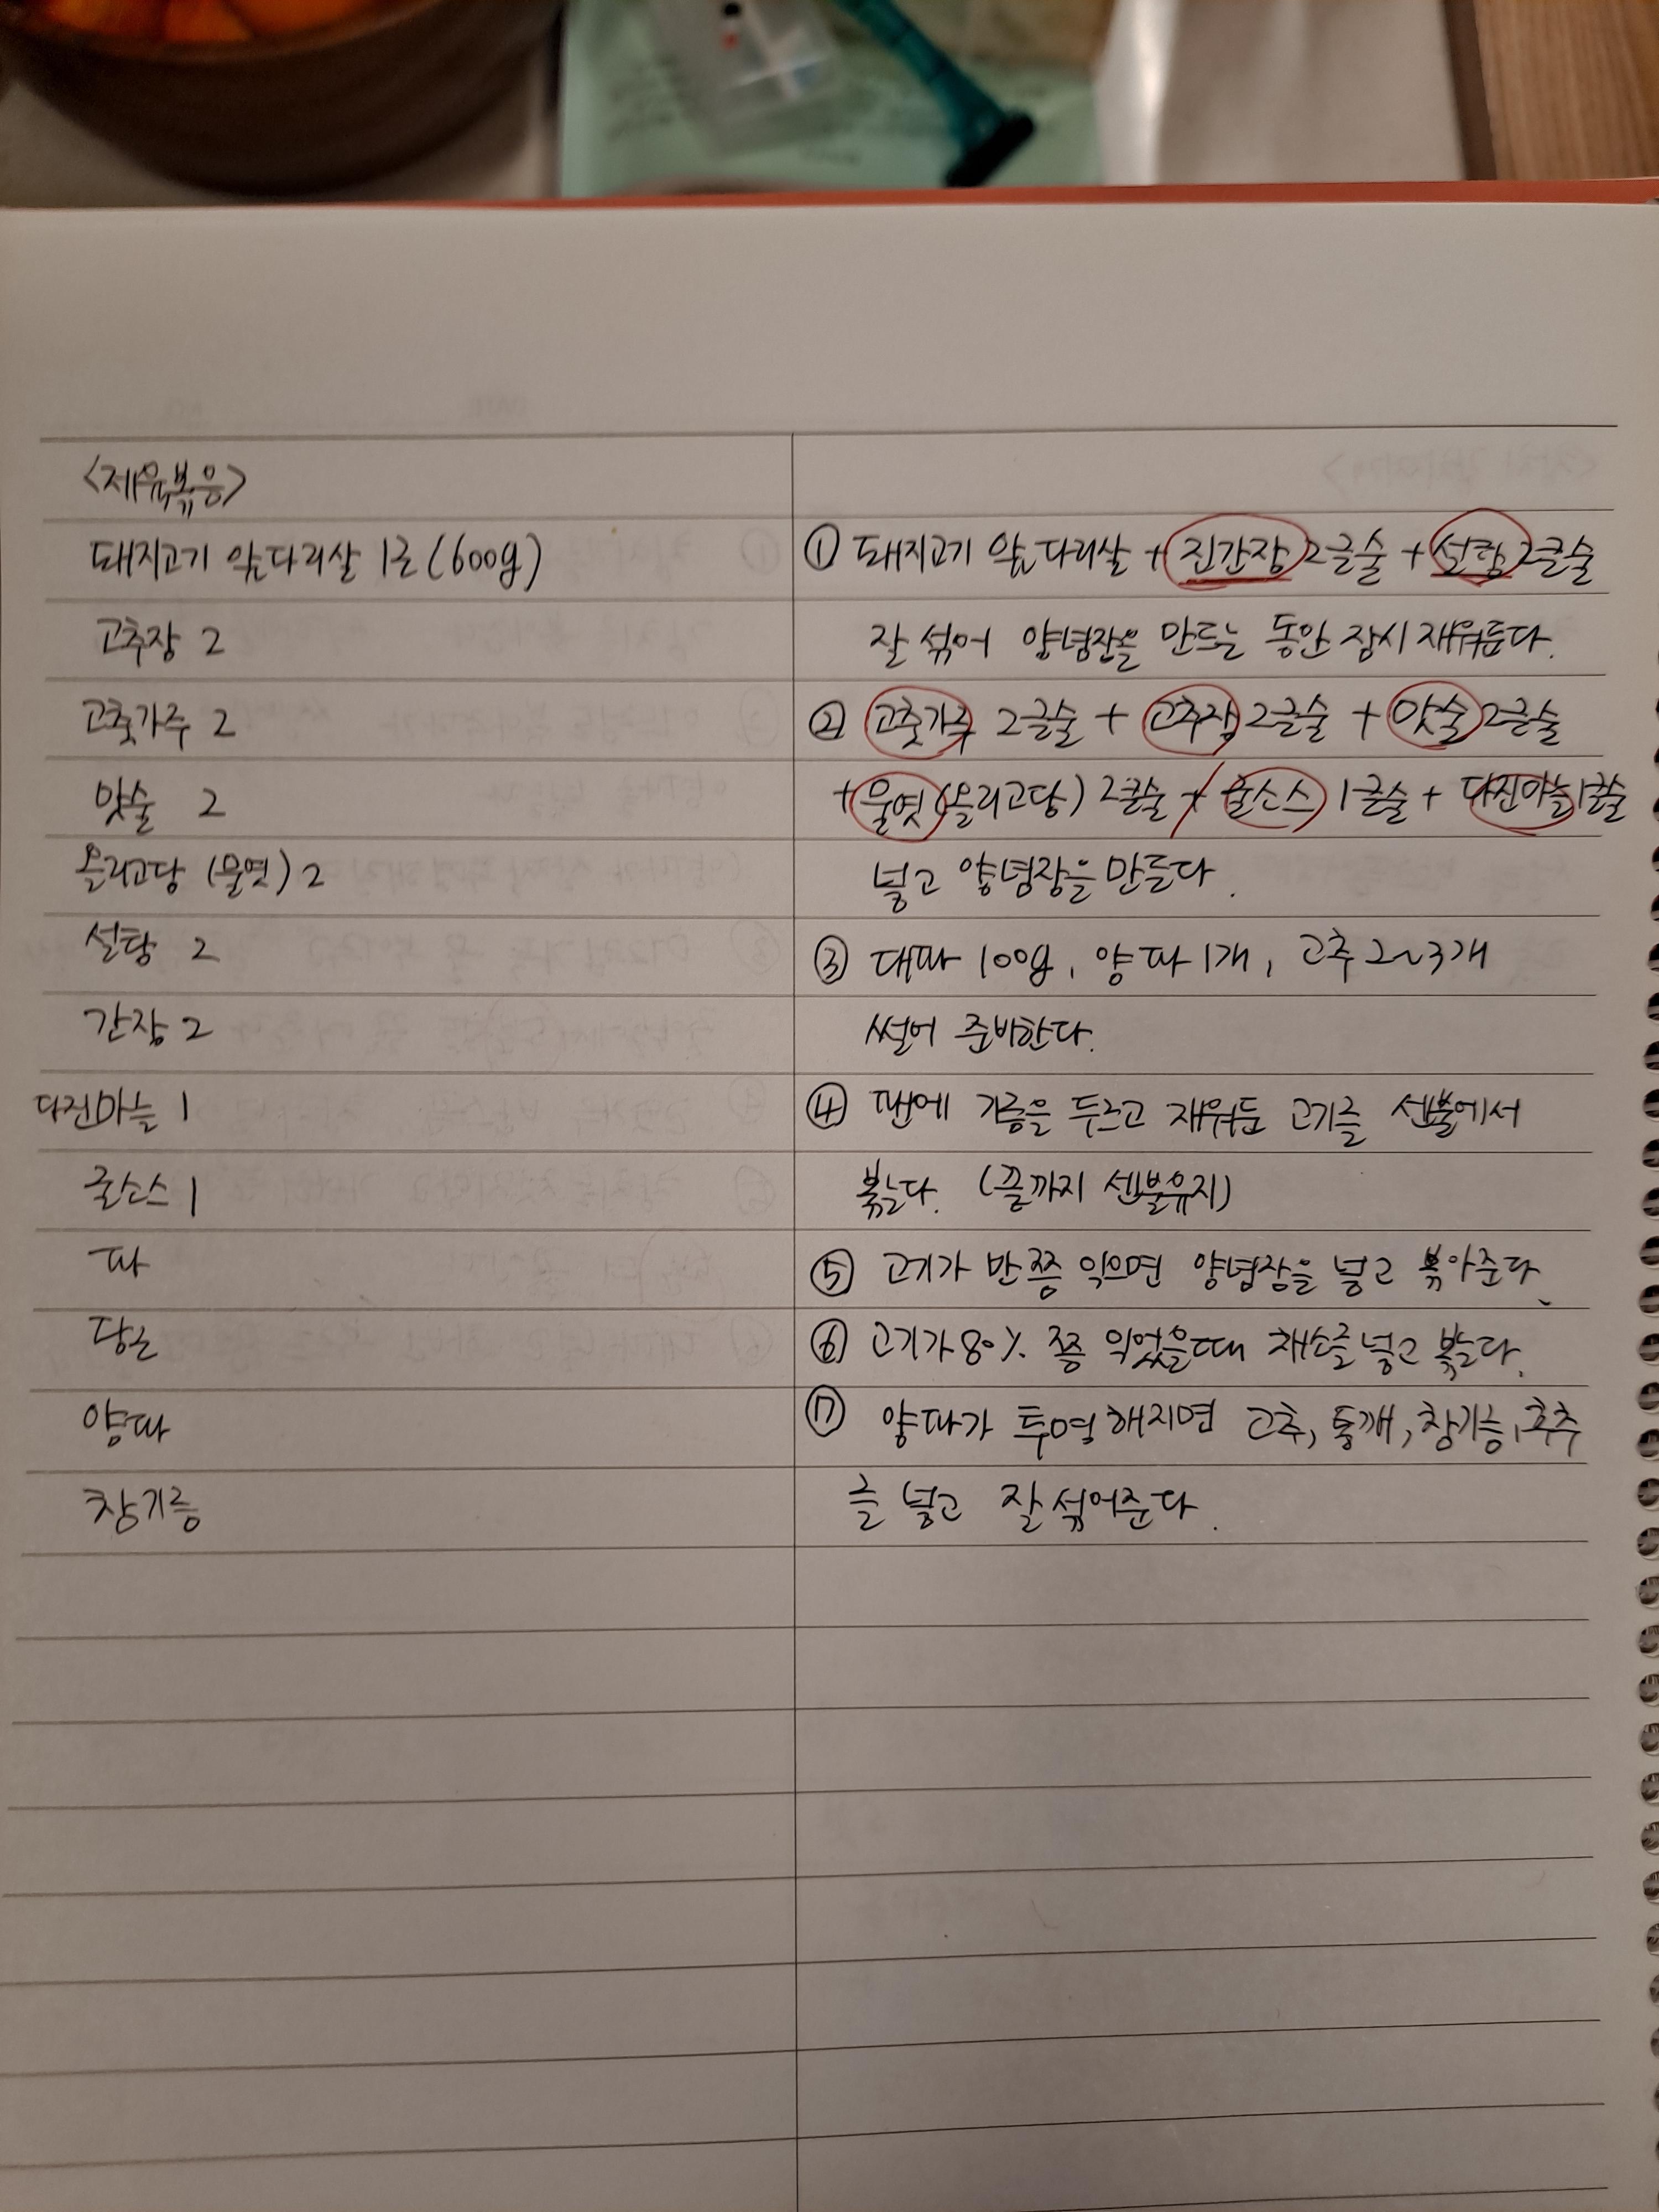 <제육볶음>
돼지고기 앞다리살 1근(600g)
고추장 2
고춧가루 2
맛술 2
올리고당 (물엿) 2
설탕 2
간장 2
다진마늘 1
굴소스 1
파
당근
양파
참기름
① 돼지고기 앞다리살 + 진간장 2큰술 + 설탕 2큰술
잘 섞어 양념장을 만드는 동안 잠시 재워둔다.
② 고춧가루 2큰술 + 고추장 2큰술 + 맛술 2큰술
+ 물엿(올리고당) 2큰술 + 굴소스 1큰술 + 다진마늘 1큰술
넣고 양념장을 만든다.
③ 대파 100g, 양파 1개, 고추 2~3개
썰어 준비한다.
④ 팬에 기름을 두르고 재워둔 고기를 센불에서
볶는다. (끝까지 센불유지)
⑤ 고기가 반쯤 익으면 양념장을 넣고 볶아준다.
⑥ 고기가 80% 쯤 익었을때 채소를 넣고 볶는다.
⑦ 양파가 투명해지면 고추, 통깨, 참기름, 후추
를 넣고 잘 섞어준다.